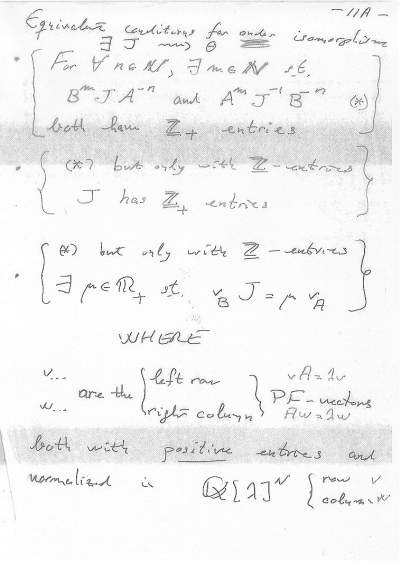 -11A-
Equivalent conditions for order isomorphism
∃ J ⟿ θ
• { For ∀ n∈ℕ, ∃ m∈ℕ s.t.
B^m J A^{-n} and A^m J^{-1} B^{-n} (*)
both have ℤ₊ entries }
• { (*) but only with ℤ-entries
J has ℤ₊ entries }
• { (*) but only with ℤ-entries
∃ μ∈ℝ₊ s.t. v_B J = μ v_A }
WHERE
v... w... are the { left row / right column } PF-vectors vA=λv Aw=λw
both with positive entries and
normalized in ℚ[λ]^N { row v / column w